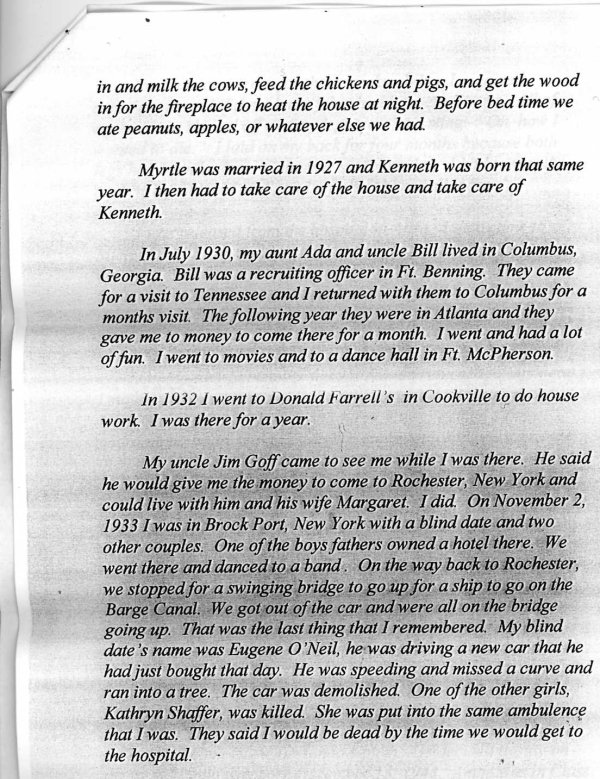 in and milk the cows, feed the chickens and pigs, and get the wood
in for the fireplace to heat the house at night.  Before bed time we
ate peanuts, apples, or whatever else we had.
Myrtle was married in 1927 and Kenneth was born that same
year.  I then had to take care of the house and take care of
Kenneth.
In July 1930, my aunt Ada and uncle Bill lived in Columbus,
Georgia.  Bill was a recruiting officer in Ft. Benning.  They came
for a visit to Tennessee and I returned with them to Columbus for a
months visit.  The following year they were in Atlanta and they
gave me to money to come there for a month.  I went and had a lot
of fun.  I went to movies and to a dance hall in Ft. McPherson.
In 1932 I went to Donald Farrell's  in Cookville to do house
work.  I was there for a year.
My uncle Jim Goff came to see me while I was there.  He said
he would give me the money to come to Rochester, New York and
could live with him and his wife Margaret.  I did.  On November 2,
1933 I was in Brock Port, New York with a blind date and two
other couples.  One of the boys fathers owned a hotel there.  We
went there and danced to a band .  On the way back to Rochester,
we stopped for a swinging bridge to go up for a ship to go on the
Barge Canal.  We got out of the car and were all on the bridge
going up.  That was the last thing that I remembered.  My blind
date's name was Eugene O'Neil, he was driving a new car that he
had just bought that day.  He was speeding and missed a curve and
ran into a tree.  The car was demolished.  One of the other girls,
Kathryn Shaffer, was killed.  She was put into the same ambulence
that I was.  They said I would be dead by the time we would get to
the hospital.